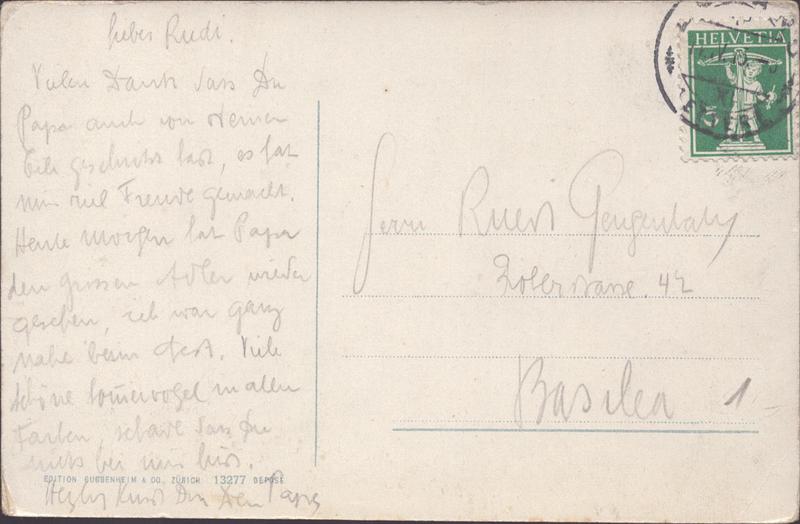 Lieber Rudi.
Vielen Dank dass Du
Papa auch von Deinen
geschickt hast, es hat
mir viel Freude gemacht.
Heute Morgen hat Papa
den grossen Adler wieder
gesehen, ich war ganz
nahe beim Nest. Viele
schöne Sommervögel in allen
Farben, schade dass Du
nicht bei mir bist.
Herzlich Kuss Dir Dein Papa
EDITION GUGGENHEIM & CO., ZÜRICH 13277 DEPOSÉ
HELVETIA
5
Herrn Ruedi Gengenbach
42
Basilea 1